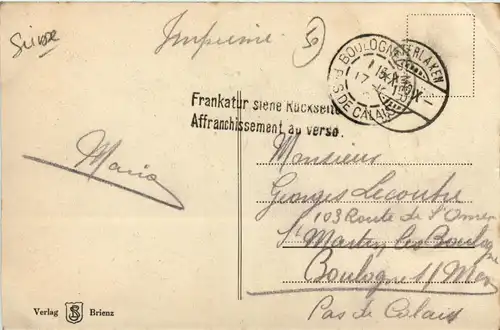 Suisse
Imprimé
50
BOULOGNE
INTERLAKEN
P. DE CALAIS
Frankatur siehe Rückseite
Affranchissement au verso.
Maria
Monsieur
Georges Lecoutre
103 Route de St Omer
St Martin les Boulogne
Boulogne s/ Mer
Pas de Calais
Verlag SB Brienz